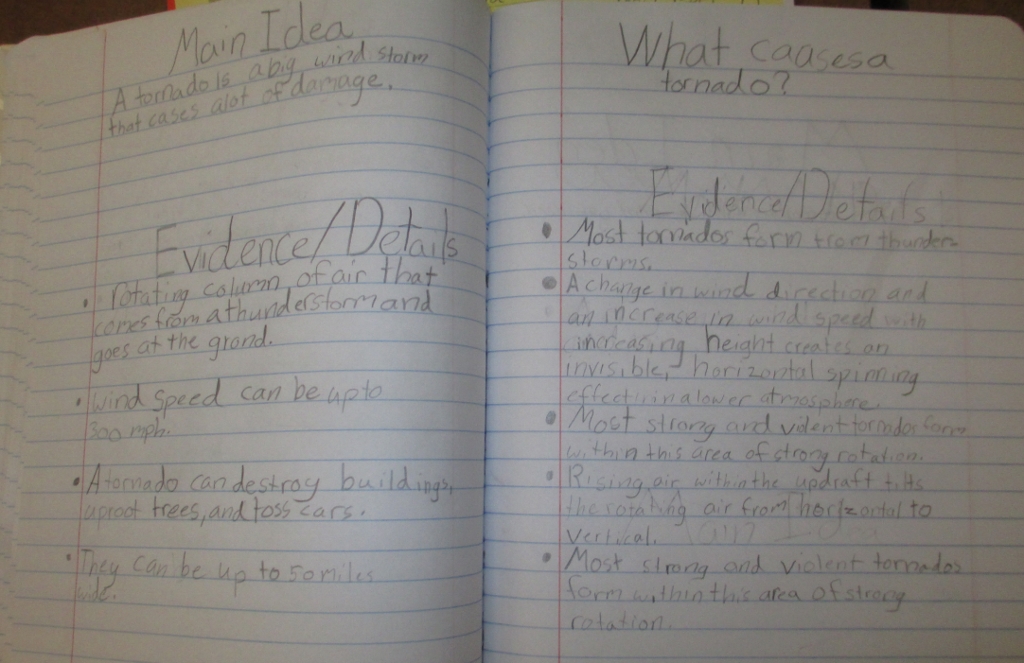 Main Idea
A tornado Is a big wind storm
that cases alot of damage.
Evidence/Details
• rotating column of air that
comes from a thunderstorm and
goes at the grond.
• wind speed can be up to
300 mph.
• A tornado can destroy buildings,
uproot trees, and toss cars.
• They can be up to 50 miles
wide.
What caases a
tornado?
Evidence/Details
• Most tornados form from thunder-
storms.
• A change in wind direction and
an increase in wind speed with
increasing height creates an
invisible, horizontal spinning
effect in a lower atmosphere.
• Most strong and violent tornados form
within this area of strong rotation.
• Rising air within the updraft tilts
the rotating air from horizontal to
vertical.
• Most strong and violent tornados
form within this area of strong
rotation.